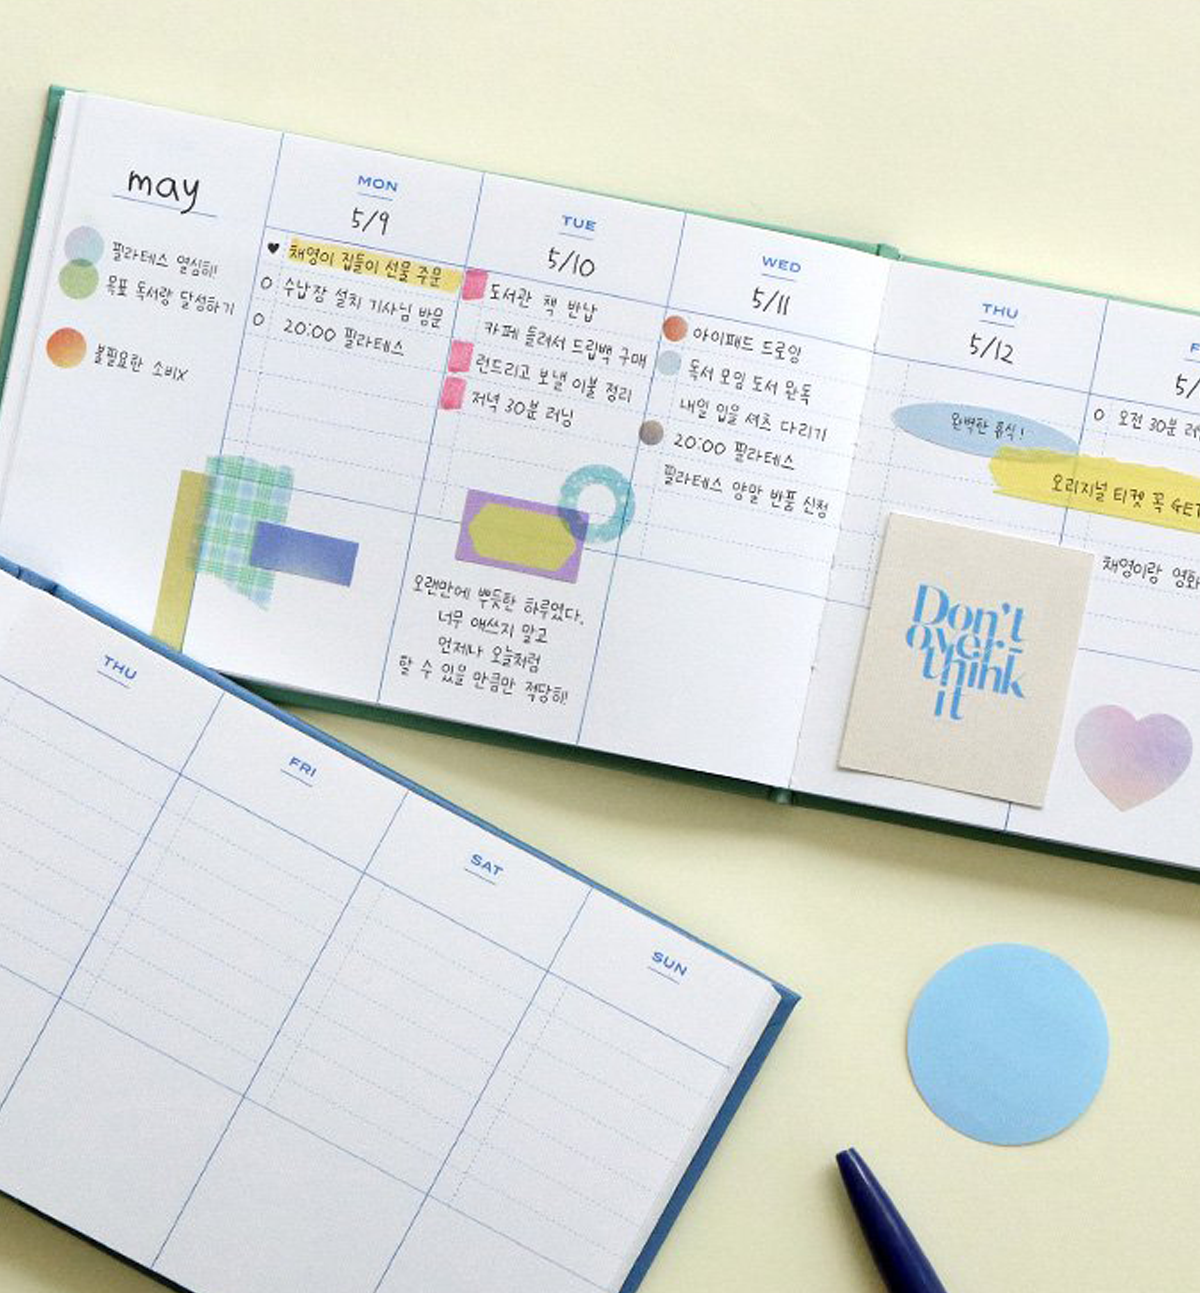 may
필라테스 열심히!
목표 독서량 달성하기
불필요한 소비X
MON
5/9
채영이 집들이 선물 주문
수납장 설치 기사님 방문
20:00 필라테스
TUE
5/10
도서관 책 반납
카페 들려서 드립백 구매
런드리고 보낼 이불 정리
저녁 30분 러닝
오랜만에 뿌듯한 하루였다.
너무 애쓰지 말고
언제나 오늘처럼
할 수 있을 만큼만 적당히!
WED
5/11
아이패드 드로잉
독서 모임 도서 완독
내일 입을 셔츠 다리기
20:00 필라테스
필라테스 양말 반품 신청
THU
5/12
완벽한 휴식!
Don't
over-
think
it
F
5/
오전 30분 러
오리지널 티켓 꼭 GET
채영이랑 영화
THU
FRI
SAT
SUN